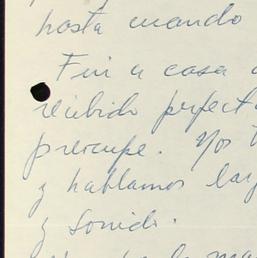 hasta cuando
Fui a casa
recibido perfect
preocupe. Nos
y hablamos lar
y sonido.